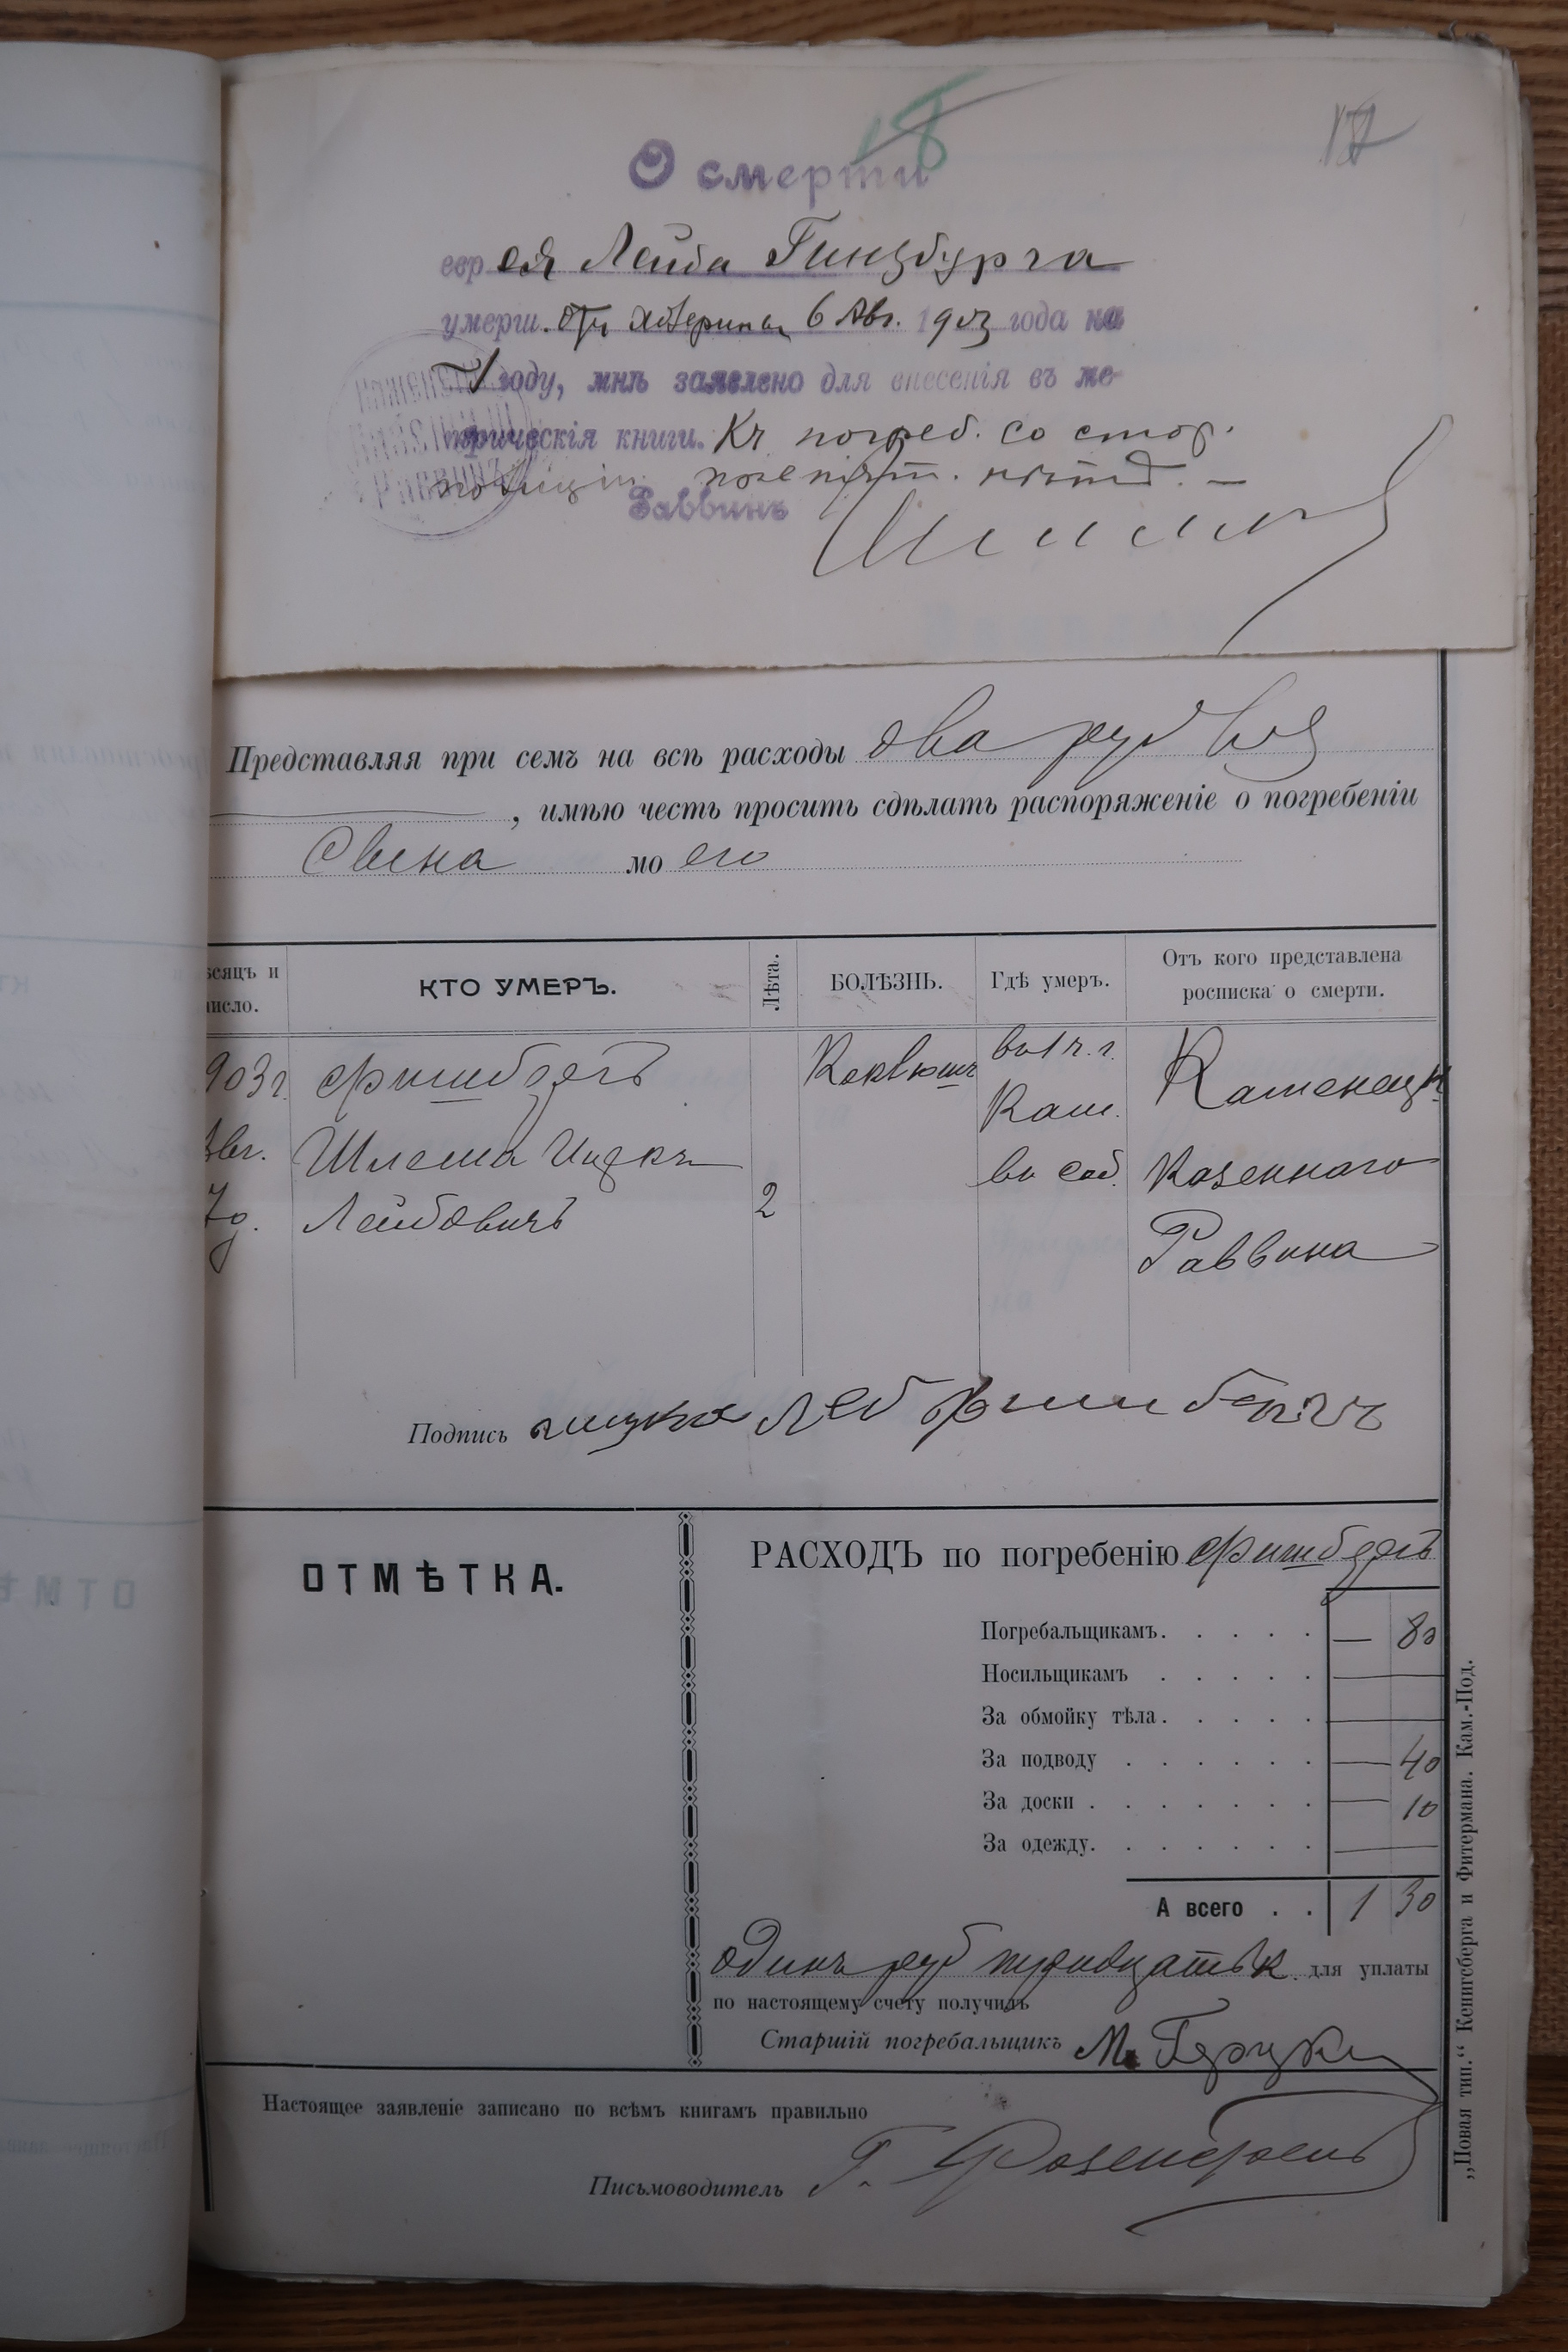 18
17
О смерти
евр ея Лейба Гинцбурга
умерш. отъ дифтерита 6 Авг. 1903 года на
году, мнѣ заявлено для внесенія въ ме-
трическія книги. Къ погреб. со стор.
полиціи препятст. нѣтъ. —
Раввинъ
Представляя при семъ на всѣ расходы два рубля
, имѣю честь просить сдѣлать распоряженіе о погребеніи
Сына моего
ѣсяцъ и число.
КТО УМЕРЪ.
Лѣта.
БОЛѢЗНЬ.
Гдѣ умеръ.
Отъ кого представлена росписка о смерти.
903 г. Фишбергъ Коклюшъ въ 1 ч. г. Каменецк.
Авг. Шлема Ицекъ Кам. Казеннаго
7 д. Лейбовичъ 2 въ соб. Раввина
Подпись ицко Леб Фишбергъ
ОТМѢТКА.
РАСХОДЪ по погребенію Фишбергъ
Погребальщикамъ. — 80
Носильщикамъ —
За обмойку тѣла. —
За подводу — 40
За доски — 10
За одежду. —
А всего . . 1 30
одинъ руб тридцать к. для уплаты
по настоящему счету получилъ
Старшій погребальщикъ М.
Настоящее заявленіе записано по всѣмъ книгамъ правильно
Письмоводитель Г.
„Новая тип.“ Кенигсберга и Фитермана. Кам.-Под.